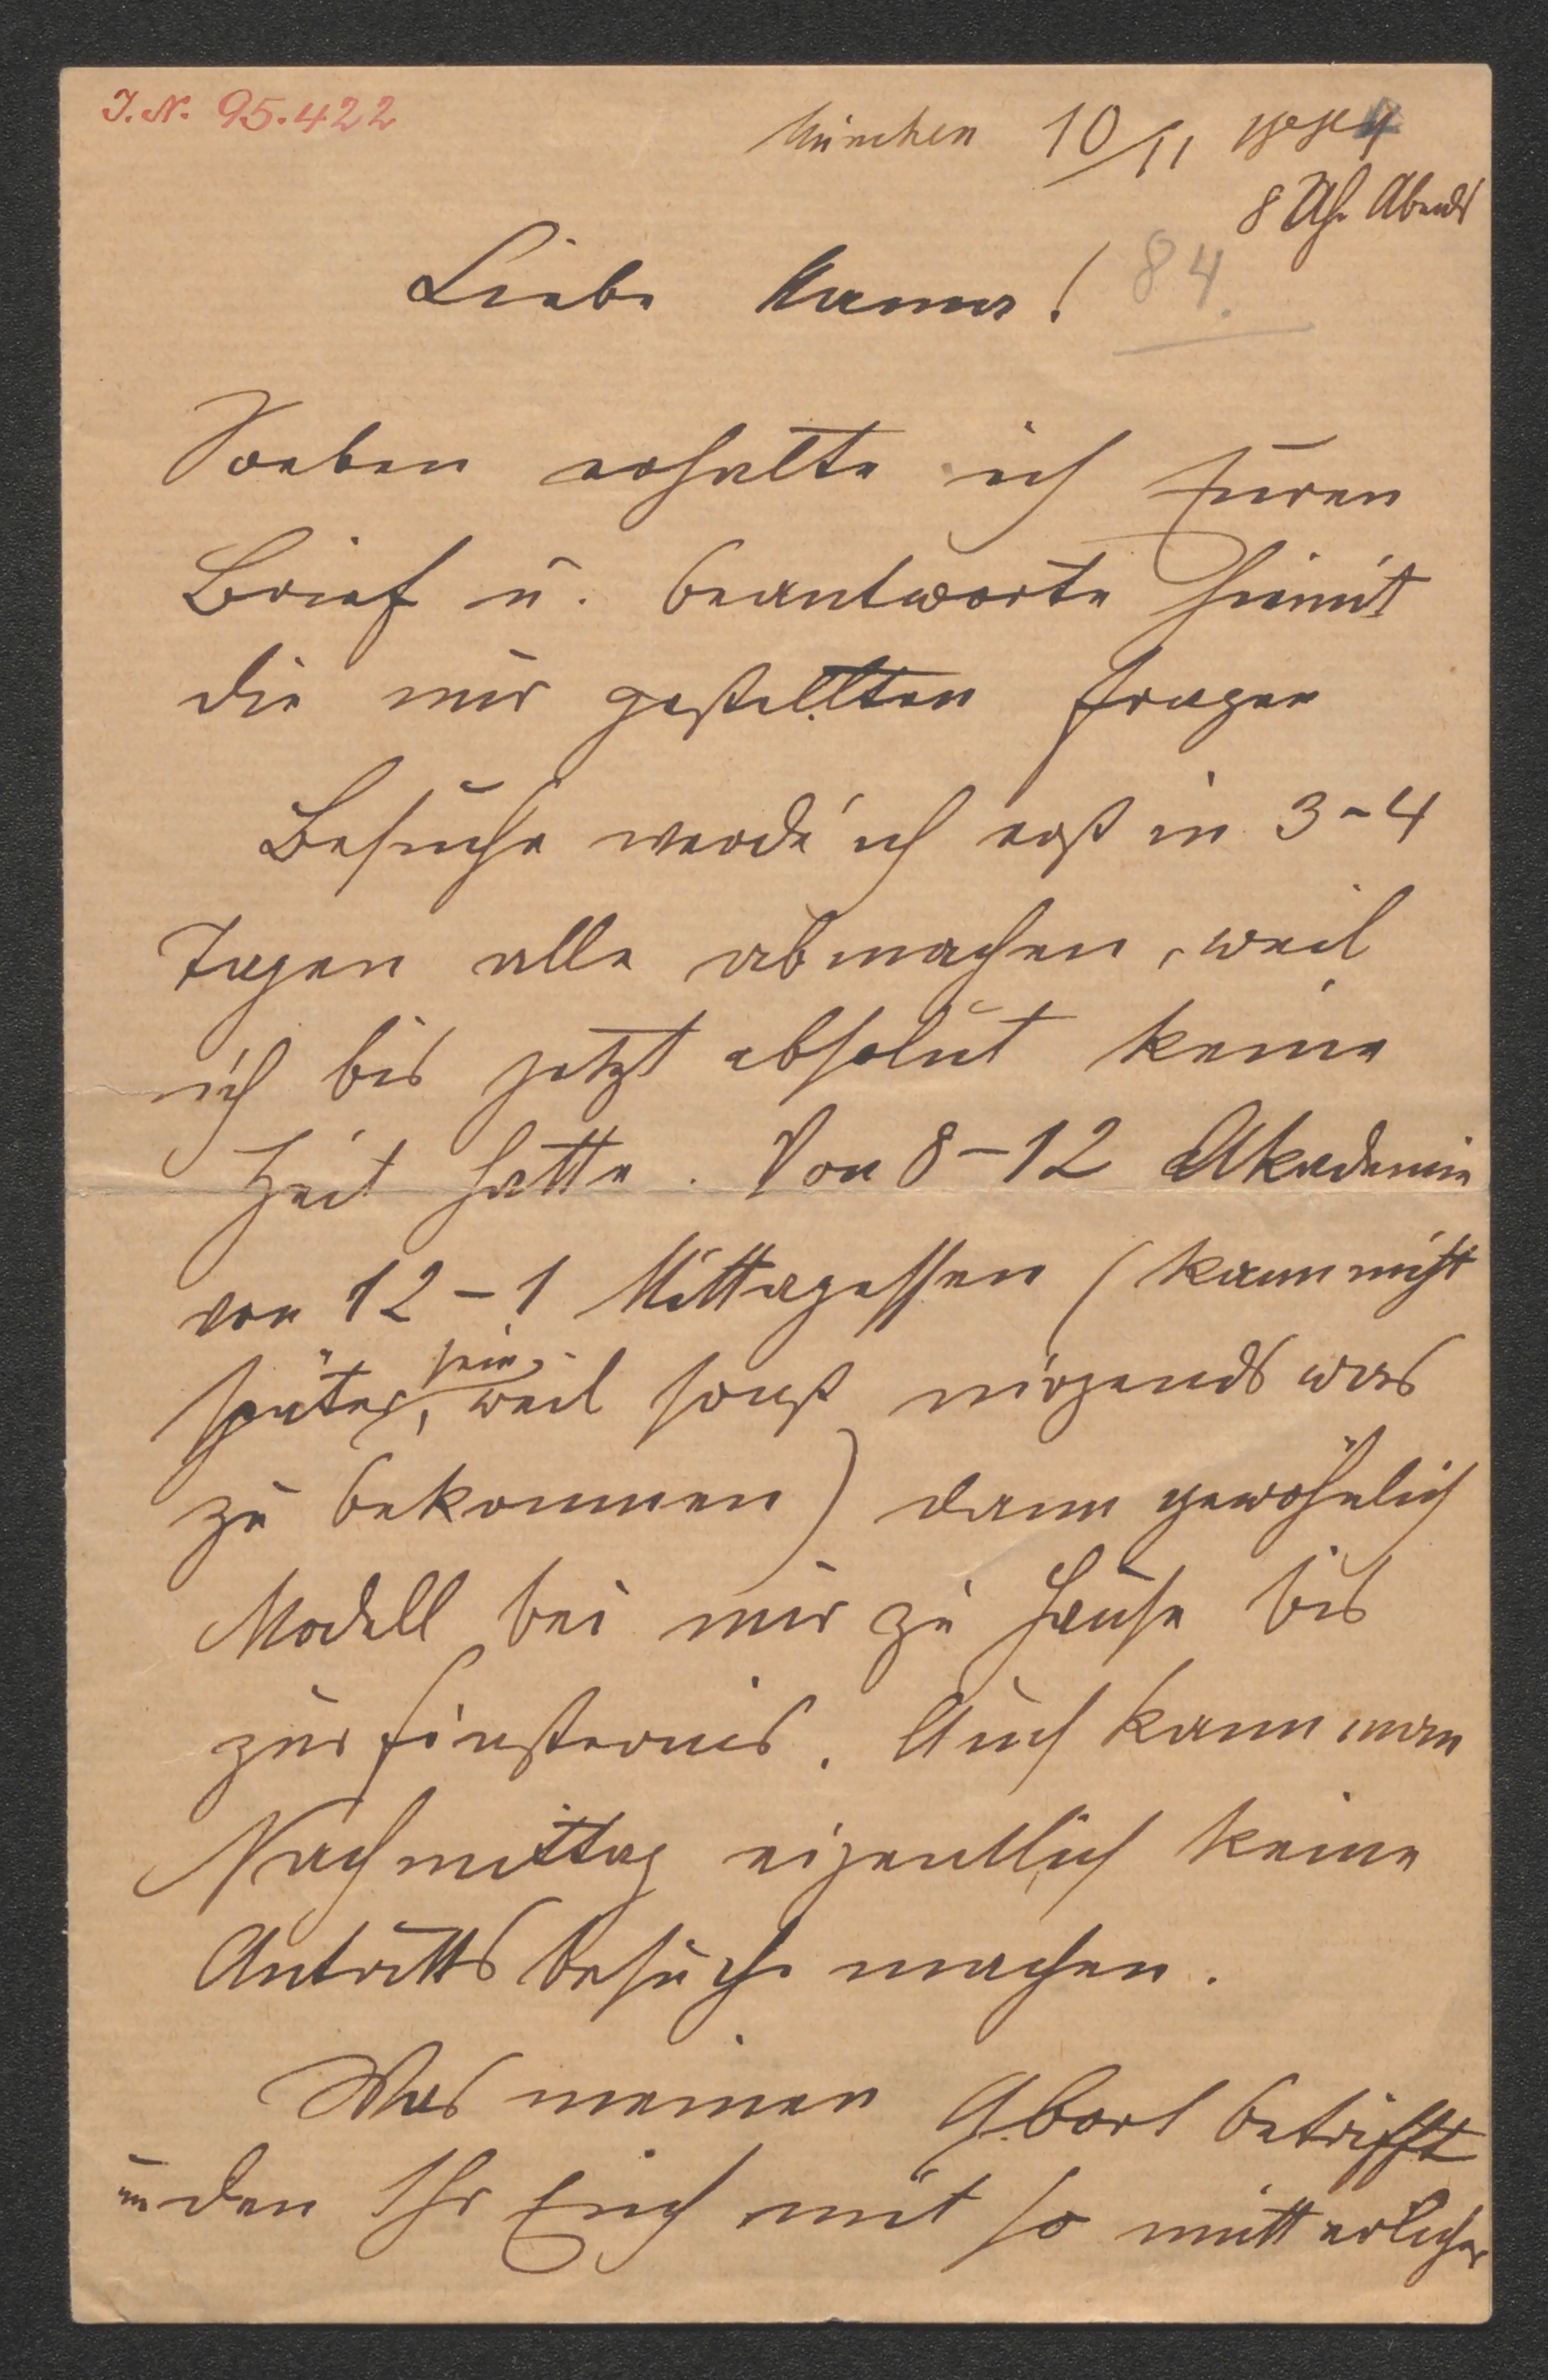 J. N. 95.422
München 10/11
8 Uhr Abends
Liebe Mama!
84.
Soeben erhalte ich Euren
Brief u. beantworte hiemit
die mir gestellten Fragen
Besuche werde ich erst in 3-4
Tagen alle abmachen, weil
ich bis jetzt absolut keine
Zeit hatte. Von 8-12 Akademie
von 12-1 Mittagessen (kann nicht
später sein, weil sonst nirgends was
zu bekommen) dann gewöhnlich
Modell bei mir zu Hause bis
zur Finsternis. Auch kann man
Nachmittag eigentlich keine
Antrittsbesuche machen.
Was meinen Abort betrifft
um den Ihr Euch mit so mütterlicher